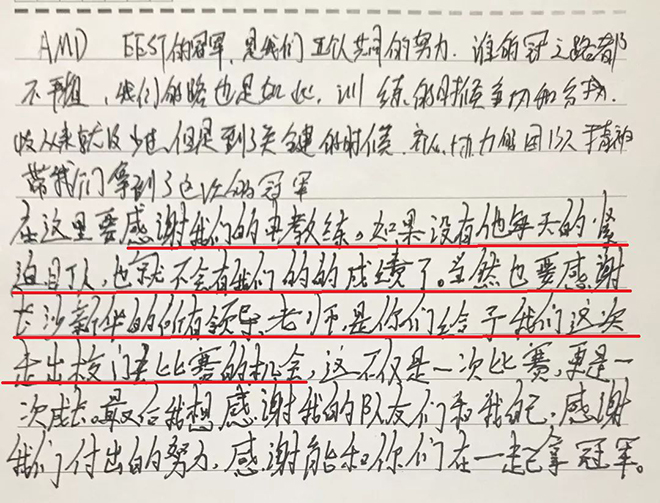 AMD EEST的冠军,是我们五个人共同的努力.谁的冠之路都
不平坦、我们的路也是如此.训练的时候争切和分歧.
从来就没少过,但是到了关键的时候、齐心协力的团队精神
带我们拿到了这次的冠军
在这里要感谢我们的 教练。如果没有他每天的紧
迫盯人,也就不会有我们的的成绩了。当然也要感谢
长沙新华的所有领导,老师,是你们给予我们这次
走出校门去比赛的机会,这不仅是一次比赛,更是一
次成长。最后我想感谢我的队友们和我自己,感谢
我们付出的努力,感谢能和你们在一起拿冠军。